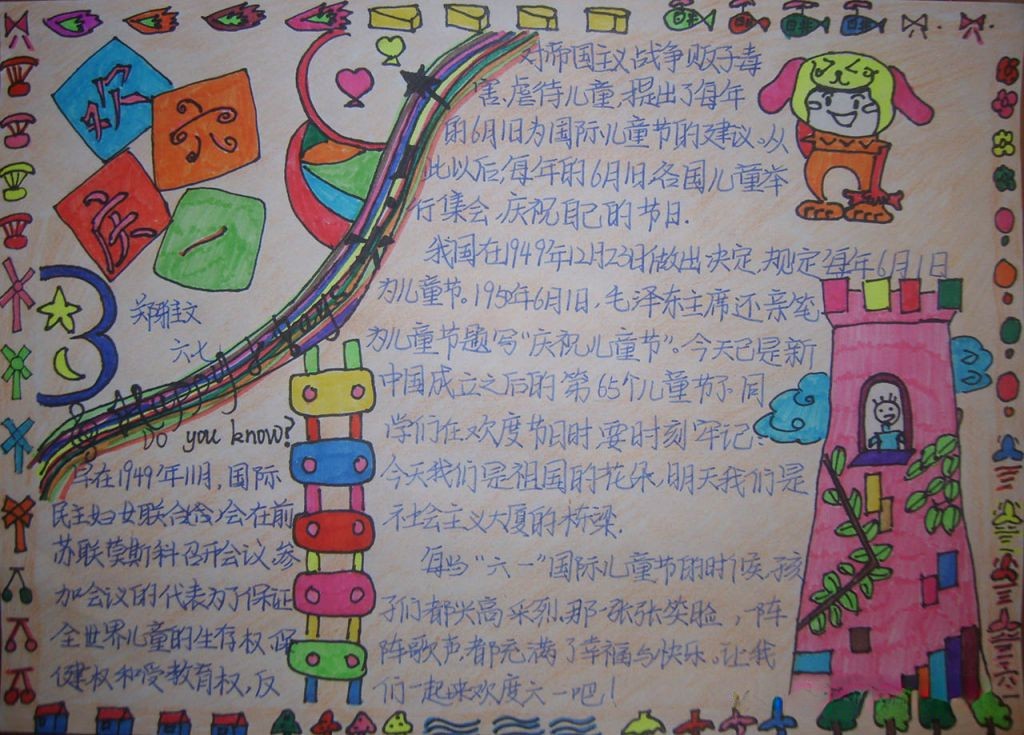 欢
六
庆
一
郑雅文
六七
Happy
Do you know?
早在1949年11月,国际
民主妇女联合会会在前
苏联莫斯科召开会议,参
加会议的代表为了保证
全世界儿童的生存权,保
健权和受教育权,反
对帝国主义战争贩子毒
害,虐待儿童,提出了每年
的6月1日为国际儿童节的建议。从
此以后,每年的6月1日,各国儿童举
行集会,庆祝自己的节日.
我国在1949年12月23日做出决定,规定每年6月1日
为儿童节。1950年6月1日,毛泽东主席还亲笔
为儿童节题写“庆祝儿童节”。今天已是新
中国成立之后的第65个儿童节了,同
学们在欢度节日时要时刻牢记:
今天我们是祖国的花朵,明天我们是
社会主义大厦的栋梁.
每当“六一”国际儿童节的时候,孩
子们都兴高采烈.那一张张笑脸,一阵
阵歌声,都充满了幸福与快乐.让我
们一起来欢度六一吧!